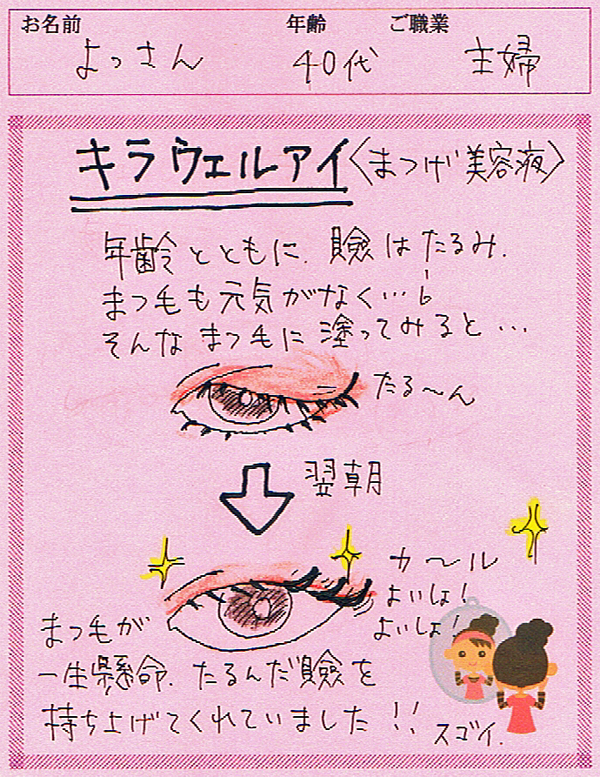 お名前 年齢 ご職業
よっさん 40代 主婦
キラウェルアイ〈まつげ美容液〉
年齢とともに、瞼はたるみ、
まつ毛も元気がなく…
そんなまつ毛に塗ってみると…
たる〜ん
翌朝
カ〜ル
よいしょ!
よいしょ!
まつ毛が
一生懸命、たるんだ瞼を
持ち上げてくれていました!!
スゴイ.